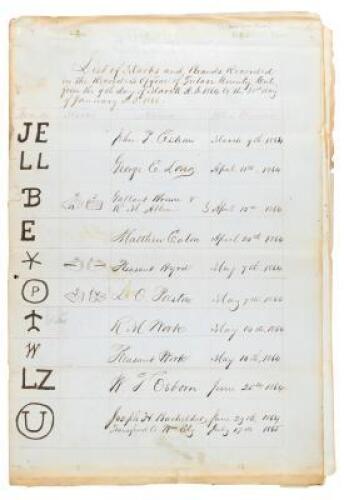 List of Marks and Brands Recorded
in the Recorder's Office of Tulare County Cal.
from the 9th day of March A.D. 1864 to the 1st day
of January A.D. 1866.
JE John March 9th 1864
LL George C. Long April 11th 1864
B Gallant Brown &
R. M. Allen April 12th 1864
E Matthew Eaton April 20th 1864
Pleasant Byrd May 7th 1864
P May 7th 1864
R. M. Work May 10th 1864
W Pleasant Work May 10th 1864
LZ W. T. Osborn June 25th 1864
U Joseph H. June 29th 1864
July 17th 1865